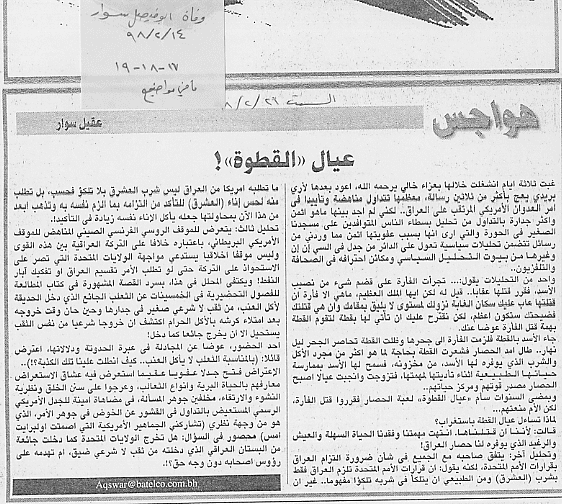 وفاة ابو فيصل سوار
٩٨/٢/١٤
١٧-١٨-١٩
هواجس
عقيل سوار
عيال «القطوة»!
غبت ثلاثة ايام انشغلت خلالها بعزاء خالي يرحمه الله، اعود بعدها لأرى
بريدي يعج بأكثر من ثلاثين رسالة، معظمها تتداول مناهضة وتأييدا في
أمر العدوان الأمريكي المرتقب على العراق.. لكني لم اجد بينها ماهو اثمن
واكثر جدارة بالتداول من تحليل بسطاء الناس المتوافدين على مسجدنا
الصغير في الحورة والتي ارى انها بسبب عفويتها اثمن مما وردني من
رسائل تتضمن تحليلات سياسية تعول على الدائر من جدل في السي إن إن
وغيرها من بيوت التحليل السياسي ومكائن احترافه في الصحافة
والتلفزيون..
واحد من التحليلات يقول:... تجرأت الفأرة على قضم شيء من نصيب
الأسد، فقرر قتلها عقابا.. قيل له لكن ايها الملك العظيم، ماهي الا فأرة ان
قتلتها عاب عليك سكان الغابة نزولك لمستوى لا يليق بمقامك وان هي قتلتك
فضيحتك ستكون اعظم، لكن نقترح عليك ان تأتي لها بقطة لتقوم القطة
بهمة قتل الفأرة عوضا عنك.
جاء الأسد بالقطة فلزمت الفأرة الى جحرها وظلت القطة تحاصر الجحر ليل
نهار.. طال امد الحصار فشعرت القطة بحاجة لما هو اكثر من مجرد الأكل
والشرب الذي يوفره لها الأسد، من مخزونه، فسمح لها الأسد بممارسة
حياتها الطبيعية اثناء تأديتها لمهمتها، فتزوجت وانجبت عيالا اصبح
الحصار مصدر قوتهم ومركز حياتهم..
وبمضي السنوات سأم «عيال القطوة»، لعبة الحصار، فقرروا قتل الفأرة،
لكن الأم منعتهم...
لماذا تساءل عيال القطة باستغراب؟
قالت: لأننا ان قتلناها، انتهت مهمتنا وفقدنا الحياة السهلة والعيش
والرغيد الذي يوفره لنا حصار العراق!
وتحليل آخر: يتفق صاحبه مع الجميع في شأن ضرورة التزام العراق
بقرارات الأمم المتحدة، لكنه يقول: ان قرارات الأمم المتحدة تلزم العراق فقط
بشرب (العشرق) ومن الطبيعي ان يتلكأ في شربه تلكؤا مفهوما.. غير ان
ما تطلبه امريكا من العراق ليس شرب العشرق بلا تلكؤ فحسب، بل تطلب
منه لحس إناء (العشرق) للتأكد من التزامه بما الزم نفسه به وتذهب ابعد
من هذا الآن بمحاولتها جعله يأكل الاناء نفسه زيادة في التأكيد!.
تحليل ثالث: يتعرض للموقف الروسي الفرنسي الصيني المناهض للموقف
الأمريكي البريطاني، باعتباره خلافا على التركة العراقية بين هذه القوى
وليس موقفا اخلاقيا يستدعي مواجهة الولايات المتحدة التي تصر على
الاستحواذ على التركة حتى لو تطلب الأمر تقسيم العراق او تفكيك آبار
النفط! ويكتفي المحلل في هذا، بسرد القصة المشهورة في كتاب المطالعة
للفصول التحضيرية في الخمسينات عن الثعلب الجائع الذي دخل الحديقة
لأكل العنب، من ثقب لا شرعي صغير في جدارها وحين حان وقت خروجه
بعد امتلاء كرشه بالأكل الحرام اكتشف ان خروجا شرعيا من نفس الثقب
يستحيل الا ان يخرج جائعا كما دخل:
احد الحضور، عوضا عن المجادلة في عبرة الحدوتة ودلالاتها، اعترض
قائلا: (بالمناسبة الثعلب لا يأكل العنب.. كيف انطلت علينا تلك الكذبة؟!)..
الاعتراض فتح جدلا عفويا عقيما استعرض فيه عشاق الاستعراض
معارفهم بالحياة البرية وانواع الثعالب، وعرجوا على سنن الخلق ونظرية
النشوء والارتقاء، مخلفين جوهر المسألة، في مضاهاة امينة للجدل الأمريكي
الرسمي المستعيض بالتداول في القشور عن الخوض في جوهر الأمر، الذي
هو من وجهة نظري (تشاركني الجماهير الأمريكية التي اصمتت اولبرايت
امس) محصور في السؤال: هل تخرج الولايات المتحدة كما دخلت جائعة
من البستان العراقي الذي دخلته من ثقب لا شرعي ضيق، ام تهدمه على
رؤوس اصحابه دون وجه حق؟!.
Aqswar@batelco.com.bh